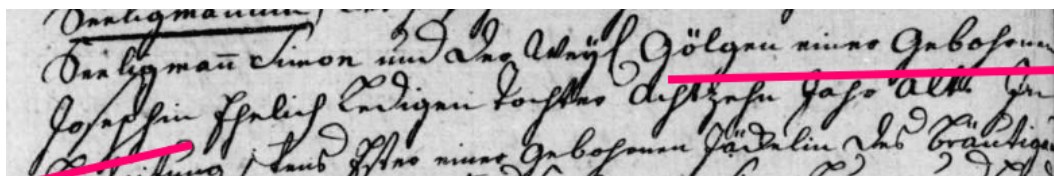 Seeligmännin
Seeligmañ Simon und der Weyl Gölgen einer Gebohrnen
Josephin Ehelich Ledigen tochter Achtzehn Jahr Alt
tens Ester einer Gebohrnen Jäckelin des Bräutiga